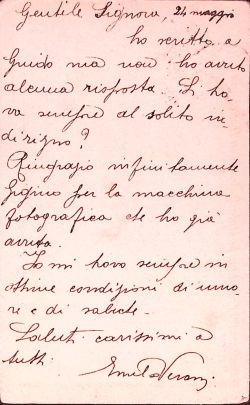 Gentile Signora, 24 maggio
ho scritto a
Guido ma non ho avuto
alcuna risposta. Si tro-
va sempre al solito in-
dirizzo?
Ringrazio infinitamente
Gigino per la macchina
fotografica che ho già
avuta.
Io mi trovo sempre in
ottime condizioni di umo-
re e di salute.
Saluti carissimi a
tutti